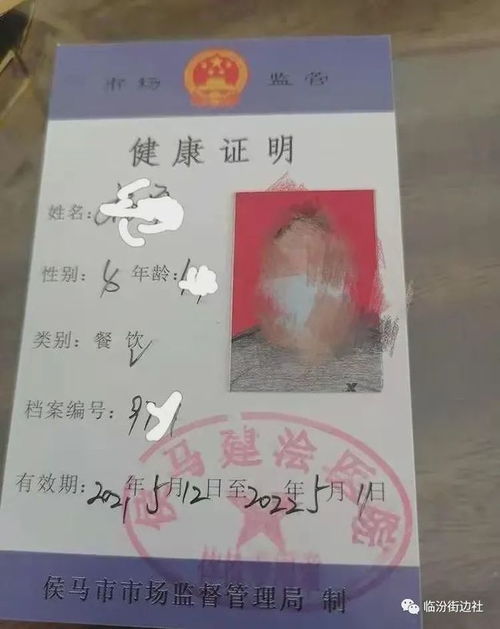 市场 监管
健康证明
姓名:
性别: 女 年龄:
类别: 餐饮
档案编号:
侯马建浍医院
有效期: 2021年5月12日至2022年5月11日
侯马市市场监督管理局 制
临汾街边社